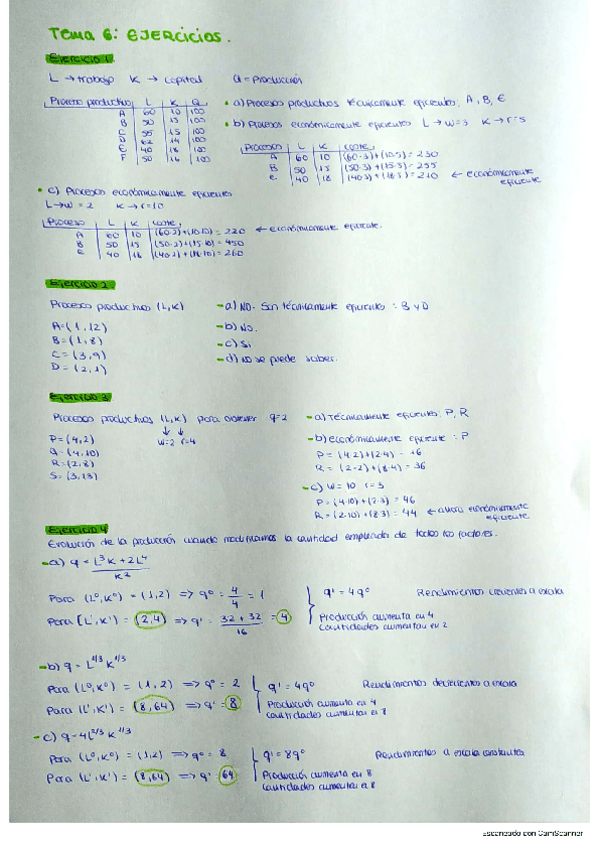 Tema 6: EJERCICIOS.
Ejercicio 1
L → trabajo K → capital Q = Producción
Proceso productivo L K Q
A 60 10 100
B 50 15 100
C 55 15 100
D 62 14 100
E 40 18 100
F 50 16 100
a) Procesos productivos técnicamente eficientes: A, B, E
b) Procesos económicamente eficientes L → w=3 K → r=5
Proceso L K coste
A 60 10 (60·3)+(10·5) = 230
B 50 15 (50·3)+(15·5) = 255
E 40 18 (40·3)+(18·5) = 210 ← económicamente
eficiente
c) Procesos económicamente eficientes
L → w = 2 K → r = 10
Proceso L K coste
A 60 10 (60·2)+(10·10) = 220 ← económicamente eficiente.
B 50 15 (50·2)+(15·10) = 450
E 40 18 (40·2)+(18·10) = 260
Ejercicio 2
Procesos productivos (L, K)
A = (1, 12)
B = (1, 8)
C = (3, 9)
D = (2, 1)
- a) NO. Son técnicamente eficientes: B y D
- b) No.
- c) Si
- d) no se puede saber.
Ejercicio 3
Procesos productivos (L, K) para obtener q=2
w=2 r=4
P = (4, 2)
Q = (4, 10)
R = (2, 8)
S = (3, 13)
- a) Técnicamente eficientes: P, R
- b) económicamente eficiente: P
P = (4·2)+(2·4) = 16
R = (2·2)+(8·4) = 36
- c) w = 10 r = 3
P = (4·10)+(2·3) = 46
R = (2·10)+(8·3) = 44 ← ahora económicamente
eficiente
Ejercicio 4
Evolución de la producción cuando modificamos la cantidad empleada de todos los factores.
- a) q = L³K + 2L⁴
K²
Para (L⁰, K⁰) = (1, 2) => q⁰ = 4/4 = 1
Para (L', K') = (2, 4) => q' = 32 + 32 / 16 = 4
q' = 4q⁰ Rendimientos crecientes a escala
Producción aumenta en 4
Cantidades aumentan en 2
- b) q = L^1/3 K^1/3
Para (L⁰, K⁰) = (1, 2) => q⁰ = 2
Para (L', K') = (8, 64) => q' = 8
q' = 4q⁰ Rendimientos decrecientes a escala
Producción aumenta en 4
Cantidades aumentan en 8
- c) q = 4L^2/3 K^1/3
Para (L⁰, K⁰) = (1, 2) => q⁰ = 8
Para (L', K') = (8, 64) => q' = 64
q' = 8q⁰ Rendimientos a escala constantes
Producción aumenta en 8
Cantidades aumentan en 8
Escaneado con CamScanner